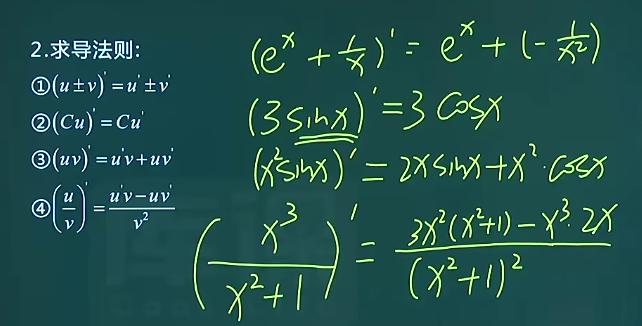 2.求导法则:
①(u±v)'=u'±v'
②(Cu)'=Cu'
③(uv)'=u'v+uv'
④(u/v)'=(u'v-uv')/v²
(eˣ+1/x)'=eˣ+(-1/x²)
(3sinx)'=3cosx
(x²sinx)'=2xsinx+x²·cosx
(x³/(x²+1))'=(3x²(x²+1)-x³·2x)/(x²+1)²